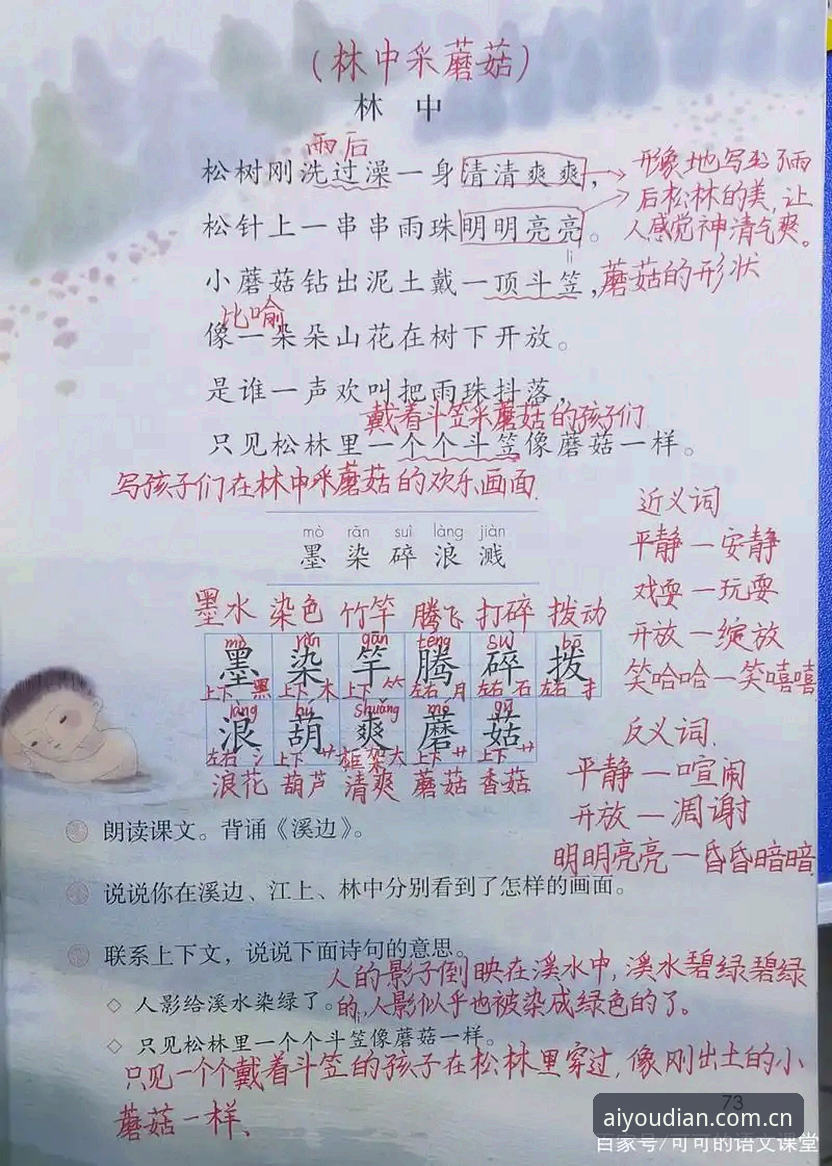 (林中采蘑菇)
林 中
雨后
松树刚洗过澡一身清清爽爽，
形象地写出了雨
后松林的美，让
人感觉神清气爽。
松针上一串串雨珠明明亮亮。
lì
小蘑菇钻出泥土戴一顶斗笠，蘑菇的形状
比喻
像一朵朵山花在树下开放。
是谁一声欢叫把雨珠抖落，
戴着斗笠采蘑菇的孩子们
只见松林里一个个斗笠像蘑菇一样。
写孩子们在林中采蘑菇的欢乐画面.
mò rǎn suì làng jiàn
墨 染 碎 浪 溅
近义词
平静—安静
戏耍—玩耍
开放—绽放
笑哈哈—笑嘻嘻
墨水 染色 竹竿 腾飞 打碎 拨动
mò rǎn gān téng suì bō
墨 染 竿 腾 碎 拨
上下 黑 上下 木 上下 ⺮ 左右 月 左右 石 左右 扌
làng hú shuǎng mó gū
浪 葫 爽 蘑 菇
左右 氵 上下 艹 框架 大 上下 艹 上下 艹
浪花 葫芦 清爽 蘑菇 香菇
反义词.
平静—喧闹
开放—凋谢
明明亮亮—昏昏暗暗
朗读课文。背诵《溪边》。
说说你在溪边、江上、林中分别看到了怎样的画面。
联系上下文，说说下面诗句的意思。
人的影子倒映在溪水中，溪水碧绿碧绿
◇ 人影给溪水染绿了。的，人影似乎也被染成绿色的了。
lì
◇ 只见松林里一个个斗笠像蘑菇一样。
只见一个个戴着斗笠的孩子在松林里穿过，像刚出土的小
蘑菇一样、
73
aiyoudian.com.cn
百家号/可可的语文课堂